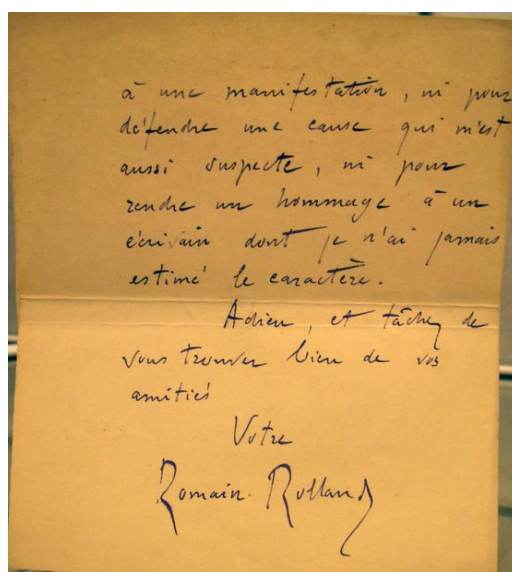 à une manifestation, ni pour
défendre une cause qui m'est
aussi suspecte, ni pour
rendre un hommage à un
écrivain dont je n'ai jamais
estimé le caractère.
Adieu, et tâchez de
vous trouver bien de vos
amitiés
Votre
Romain Rolland